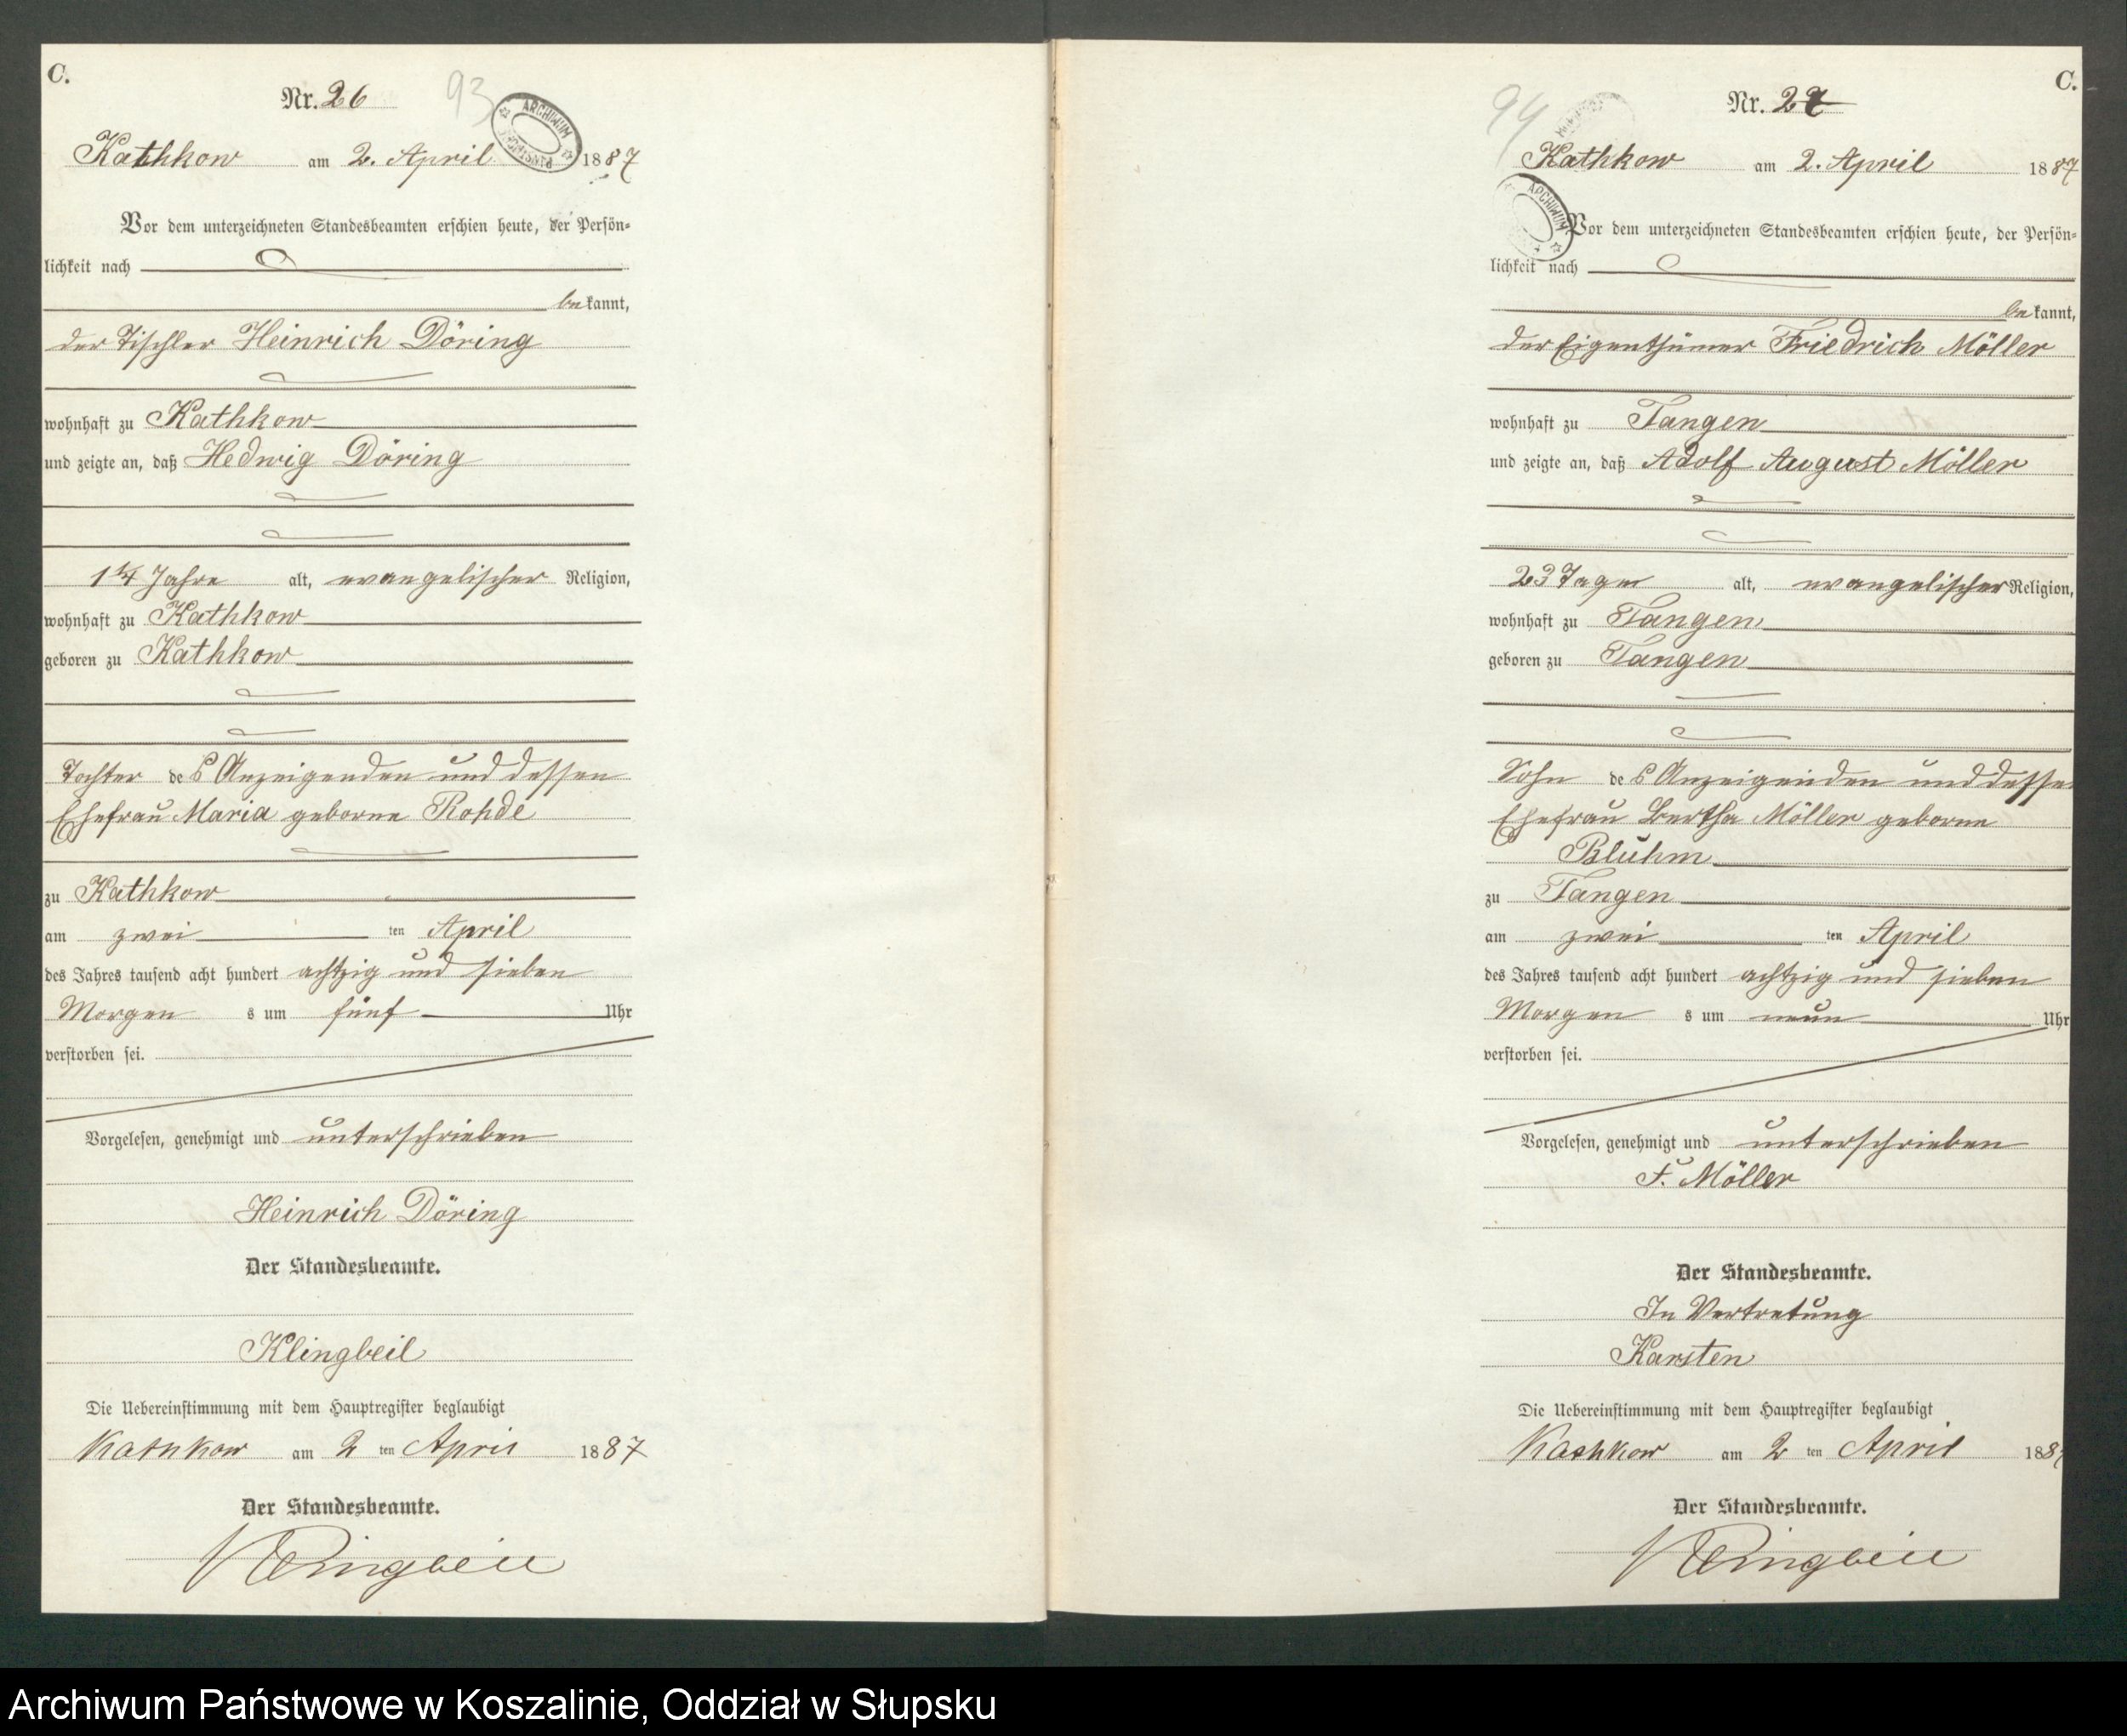 C.
Nr. 26
93
ARCHIWUM
Kathkow am 2. April 1887
Vor dem unterzeichneten Standesbeamten erschien heute, der Persön-
lichkeit nach
bekannt,
der Tischler Heinrich Döring
wohnhaft zu Kathkow
und zeigte an, daß Hedwig Döring
1 1/4 Jahre alt, evangelischer Religion,
wohnhaft zu Kathkow
geboren zu Kathkow
Tochter des Anzeigenden und dessen
Ehefrau Maria geborne Rohde
zu Kathkow
am zwei ten April
des Jahres tausend acht hundert achtzig und sieben
Morgens um fünf Uhr
verstorben sei.
Vorgelesen, genehmigt und unterschrieben
Heinrich Döring
Der Standesbeamte.
Klingbeil
Die Uebereinstimmung mit dem Hauptregister beglaubigt
Kathkow am 2 ten April 1887
Der Standesbeamte.
Klingbeil
C.
Nr. 27
94
Kathkow am 2. April 1887
ARCHIWUM
Vor dem unterzeichneten Standesbeamten erschien heute, der Persön-
lichkeit nach
bekannt,
der Eigenthümer Friedrich Möller
wohnhaft zu Tangen
und zeigte an, daß Adolf August Möller
23 Tage alt, evangelischer Religion,
wohnhaft zu Tangen
geboren zu Tangen
Sohn des Anzeigenden und dessen
Ehefrau Bertha Möller geborne
Bluhm
zu Tangen
am zwei ten April
des Jahres tausend acht hundert achtzig und sieben
Morgens um neun Uhr
verstorben sei.
Vorgelesen, genehmigt und unterschrieben
F. Möller
Der Standesbeamte.
In Vertretung
Karsten
Die Uebereinstimmung mit dem Hauptregister beglaubigt
Kathkow am 2 ten April 1887
Der Standesbeamte.
Klingbeil
Archiwum Państwowe w Koszalinie, Oddział w Słupsku